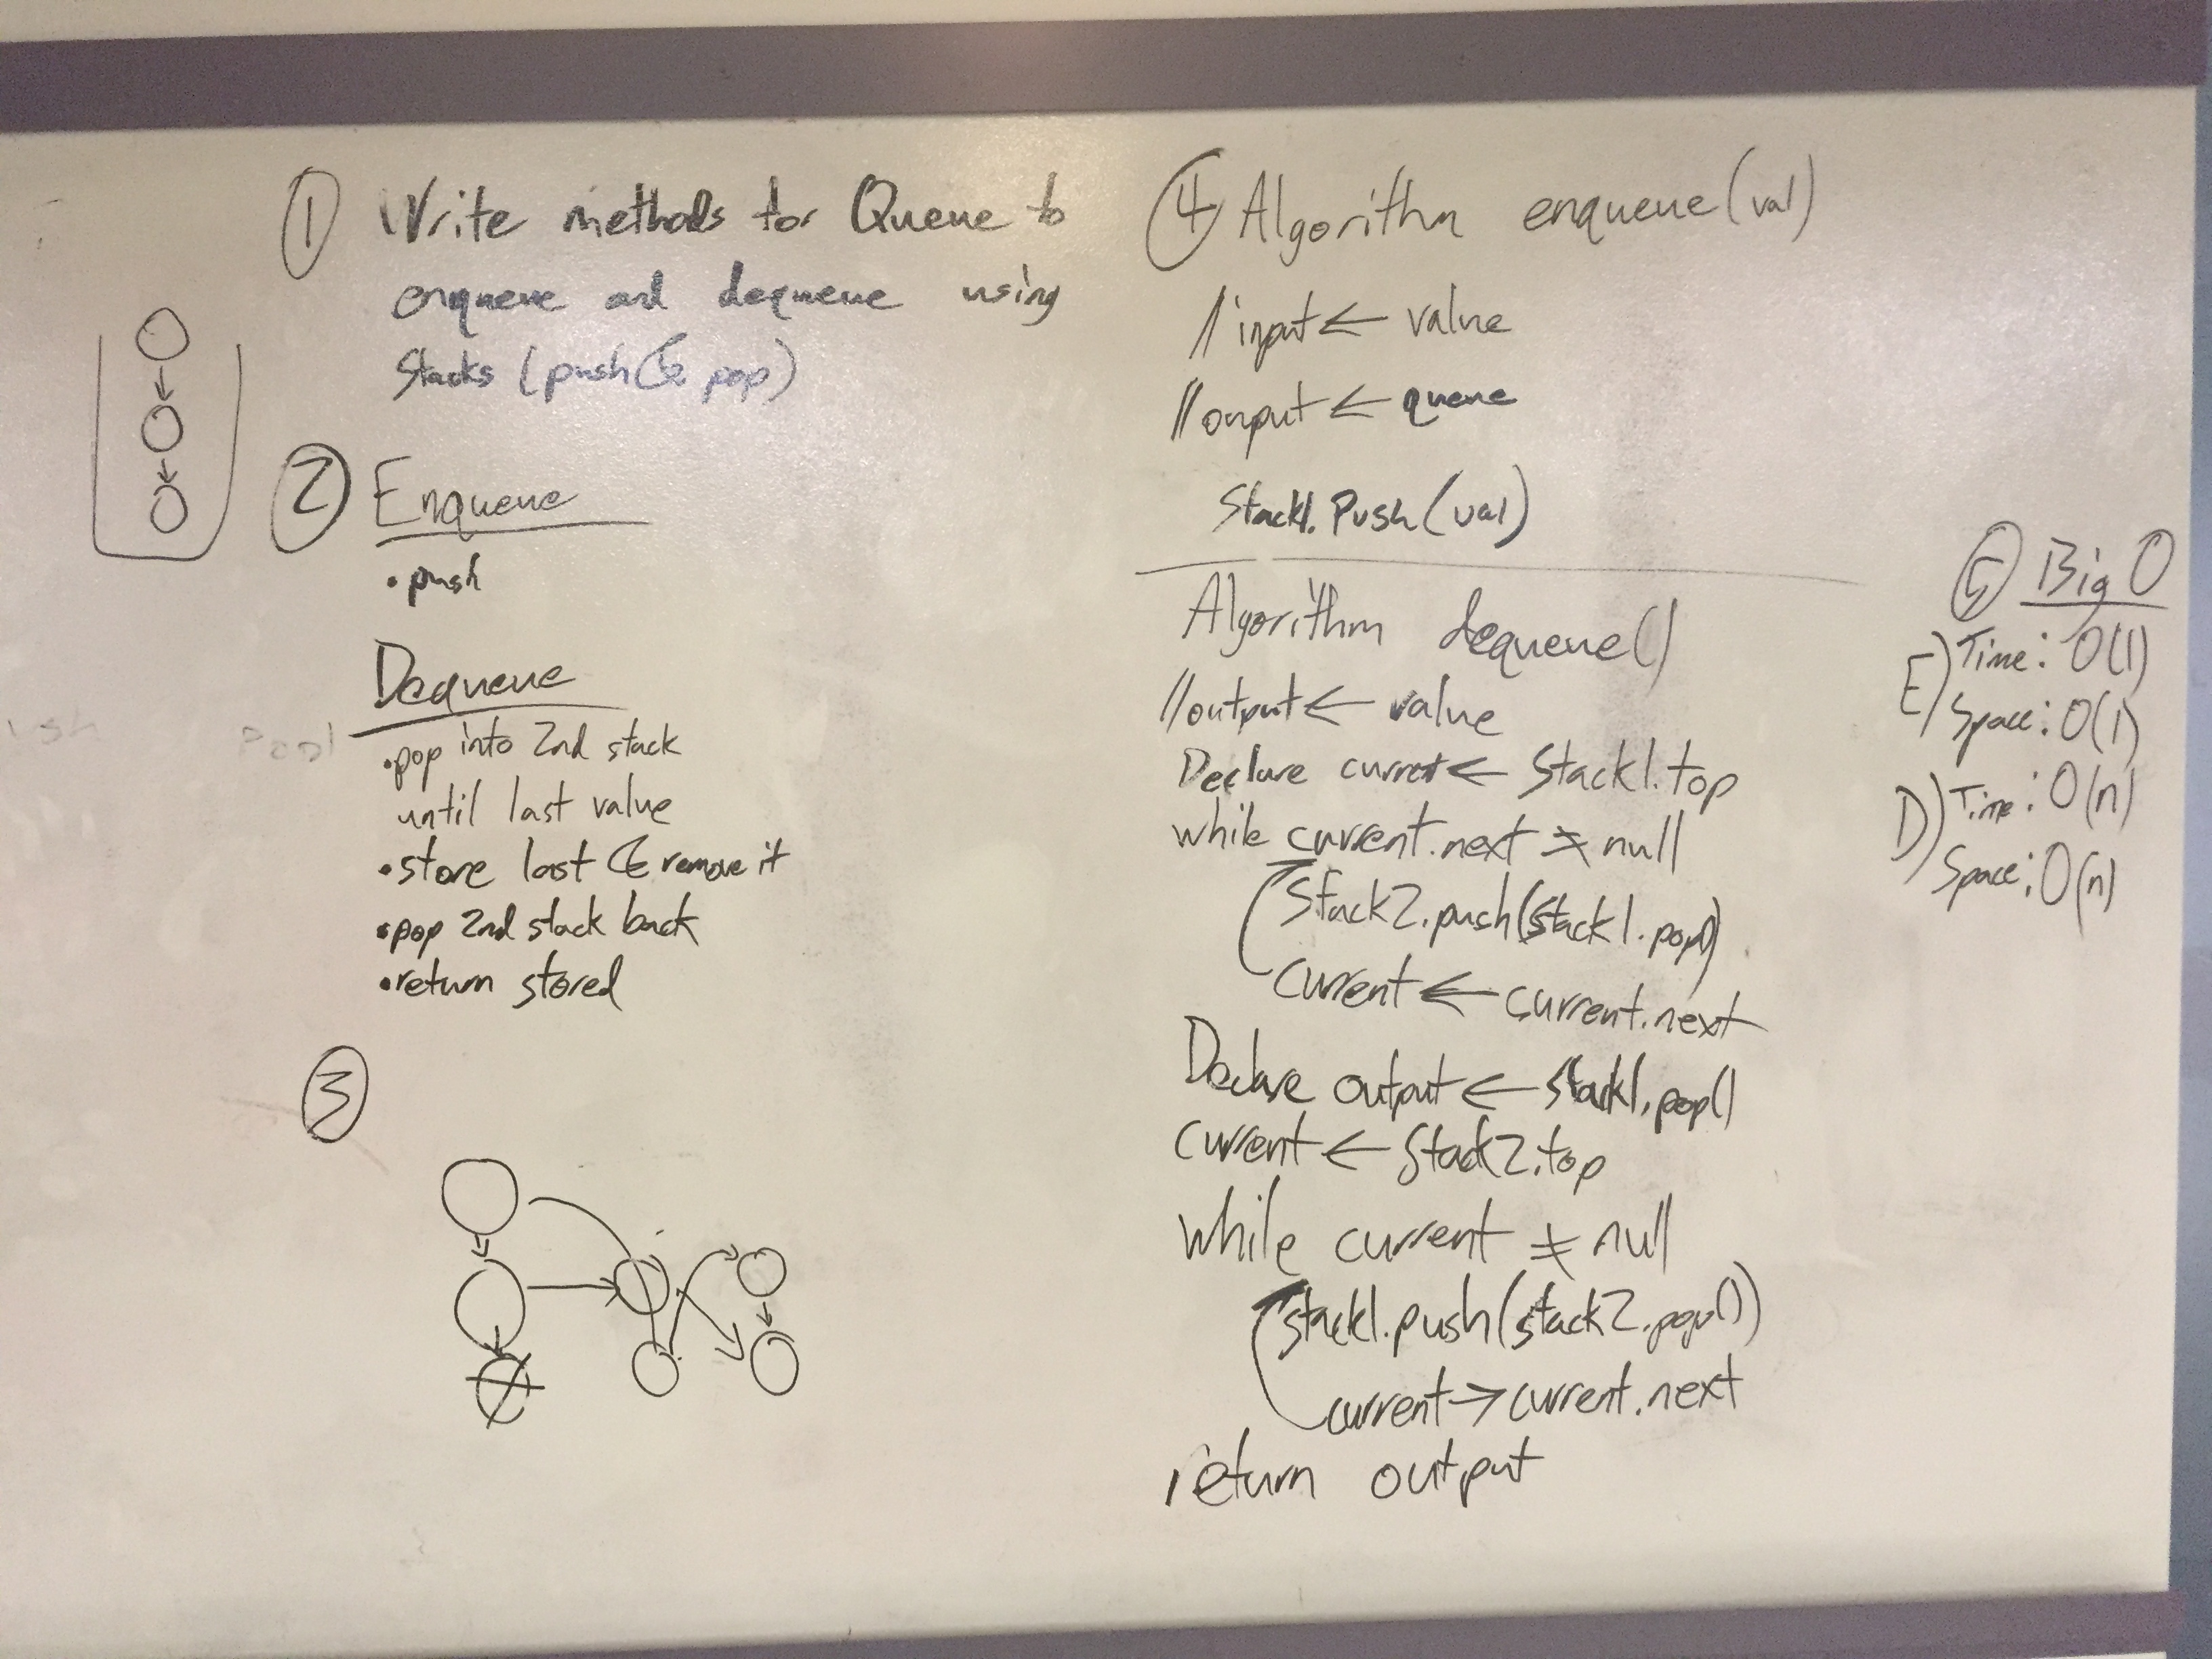 ① Write methods for Queue to
enqueue and dequeue using
Stacks (push & pop)
② Enqueue
• push
Dequeue
• pop into 2nd stack
until last value
• store last & remove it
• pop 2nd stack back
• return stored
③
④ Algorithm enqueue(val)
// input ← value
// onput ← queue
Stack1.Push(val)
Algorithm dequeue()
// output ← value
Declare current ← Stack1.top
while current.next ≠ null
Stack2.push(stack1.pop())
current ← current.next
Declare output ← stack1.pop()
current ← Stack2.top
while current ≠ null
stack1.push(stack2.pop())
current → current.next
return output
⑤ Big O
E) Time: O(1)
Space: O(1)
D) Time: O(n)
Space: O(n)